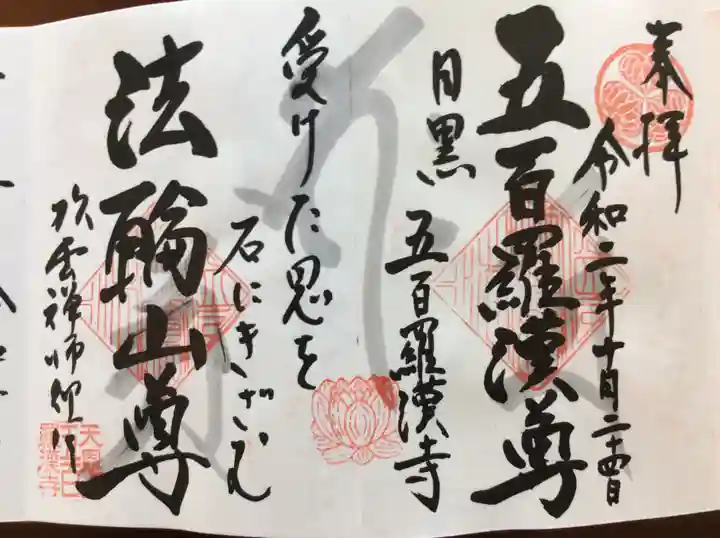 奉拝
令和二年十月二十四日
五百羅漢尊
目黒 五百羅漢寺
受けた恩を
石にきざむ
法輪山尊
松雲禅師
天恩山
五百
羅漢寺